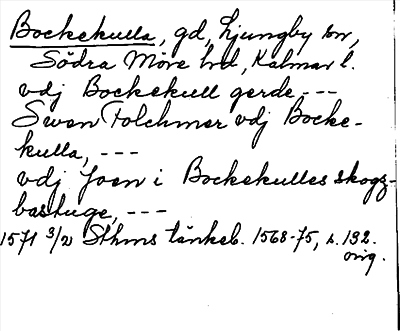 Bockekulla, gd, Ljungby sn,
Södra Möre hd, Kalmar l.
vdj Bockekull gerde ---
Swen Folchmer vdj Bocke-
kulla, ---
vdj Joen i Bockekulles skogz-
bastuge, ---
1571 3/2 Sthms tänkeb. 1568-75, s. 192.
orig.